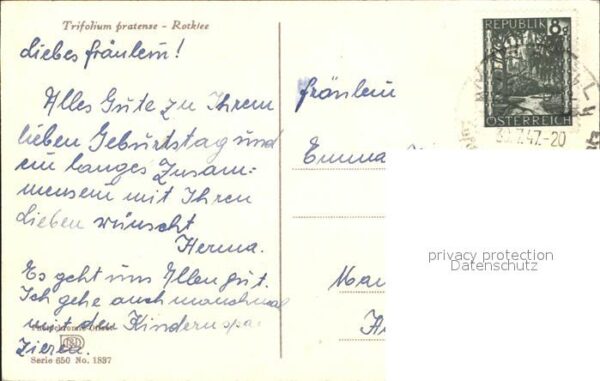 Trifolium pratense - Rotklee
Liebes fräulein!
Alles Gute zu Ihrem
lieben Geburtstag und
ein langes Zusam:
mensein mit Ihren
Lieben wünscht
Herma.
Es geht uns Allen gut.
Ich gehe auch manchmal
mit den Kindern spa
zieren.
Serie 650 No. 1837
fräulein
Emma
REPUBLIK 8g
ÖSTERREICH
30.7.47.-20
privacy protection
Datenschutz